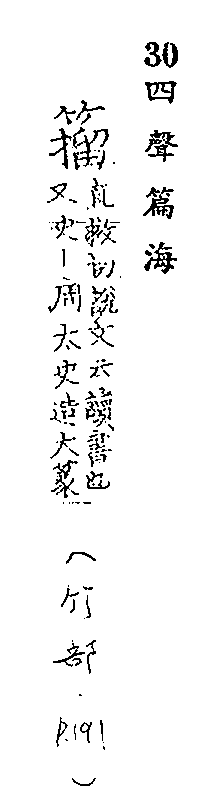 30 四聲篇海
籒 直救切說文云讀書也
又史丨周太史造大篆
(竹部．P.191)